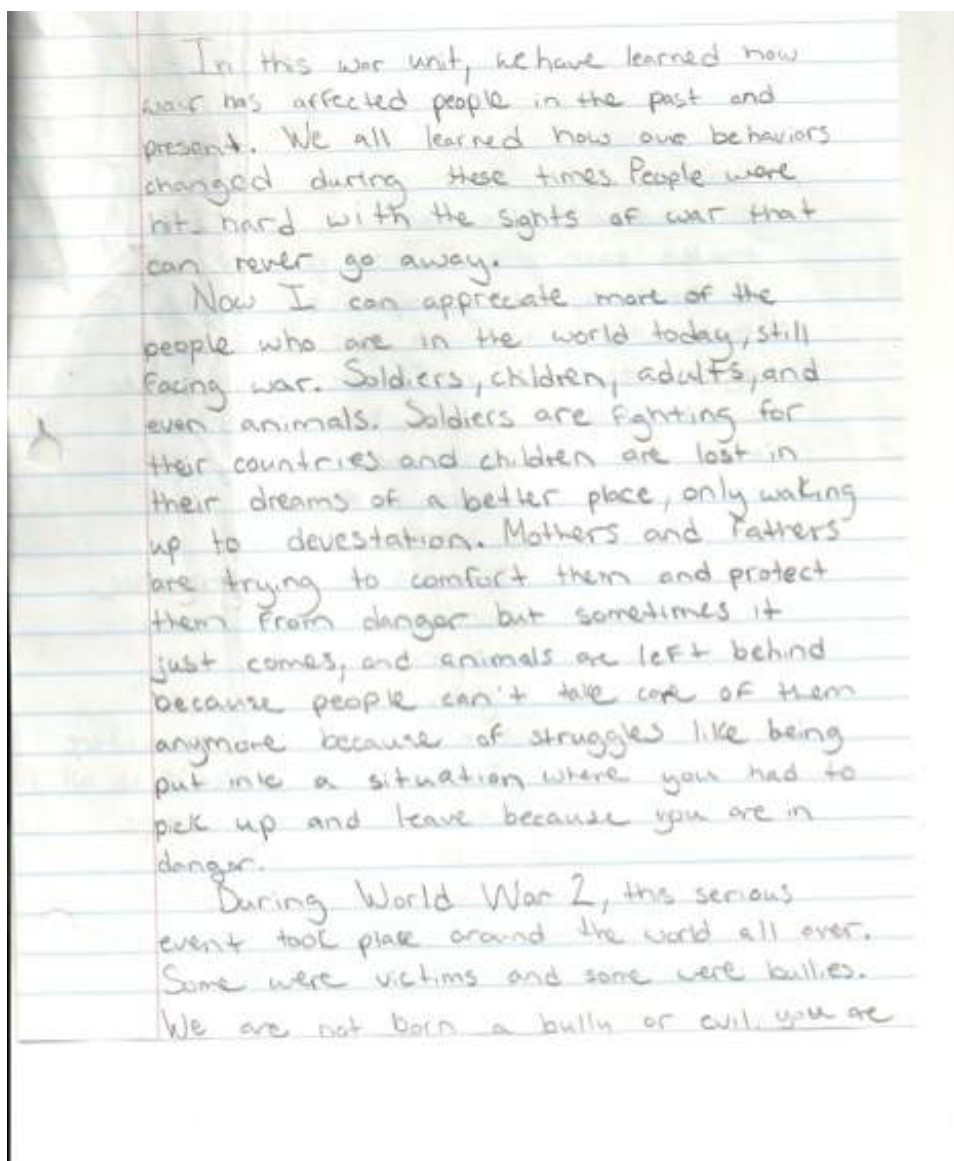 In this war unit, we have learned how
war has affected people in the past and
present. We all learned how our behaviors
changed during these times. People were
hit hard with the sights of war that
can never go away.
Now I can apprecate more of the
people who are in the world today, still
facing war. Soldiers, children, adults, and
even animals. Soldiers are fighting for
their countries and children are lost in
their dreams of a better place, only waking
up to devestation. Mothers and Fathers
are trying to comfort them and protect
them from danger but sometimes it
just comes, and animals are left behind
because people can't take care of them
anymore because of struggles like being
put into a situation where you had to
pick up and leave because you are in
danger.
During World War 2, this serious
event took place around the world all over.
Some were victims and some were bullies.
We are not born a bully or evil you are